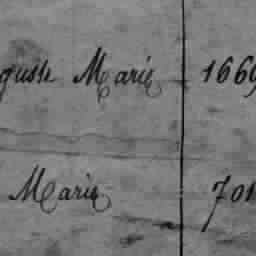 guste Marie 1669
Marie 701